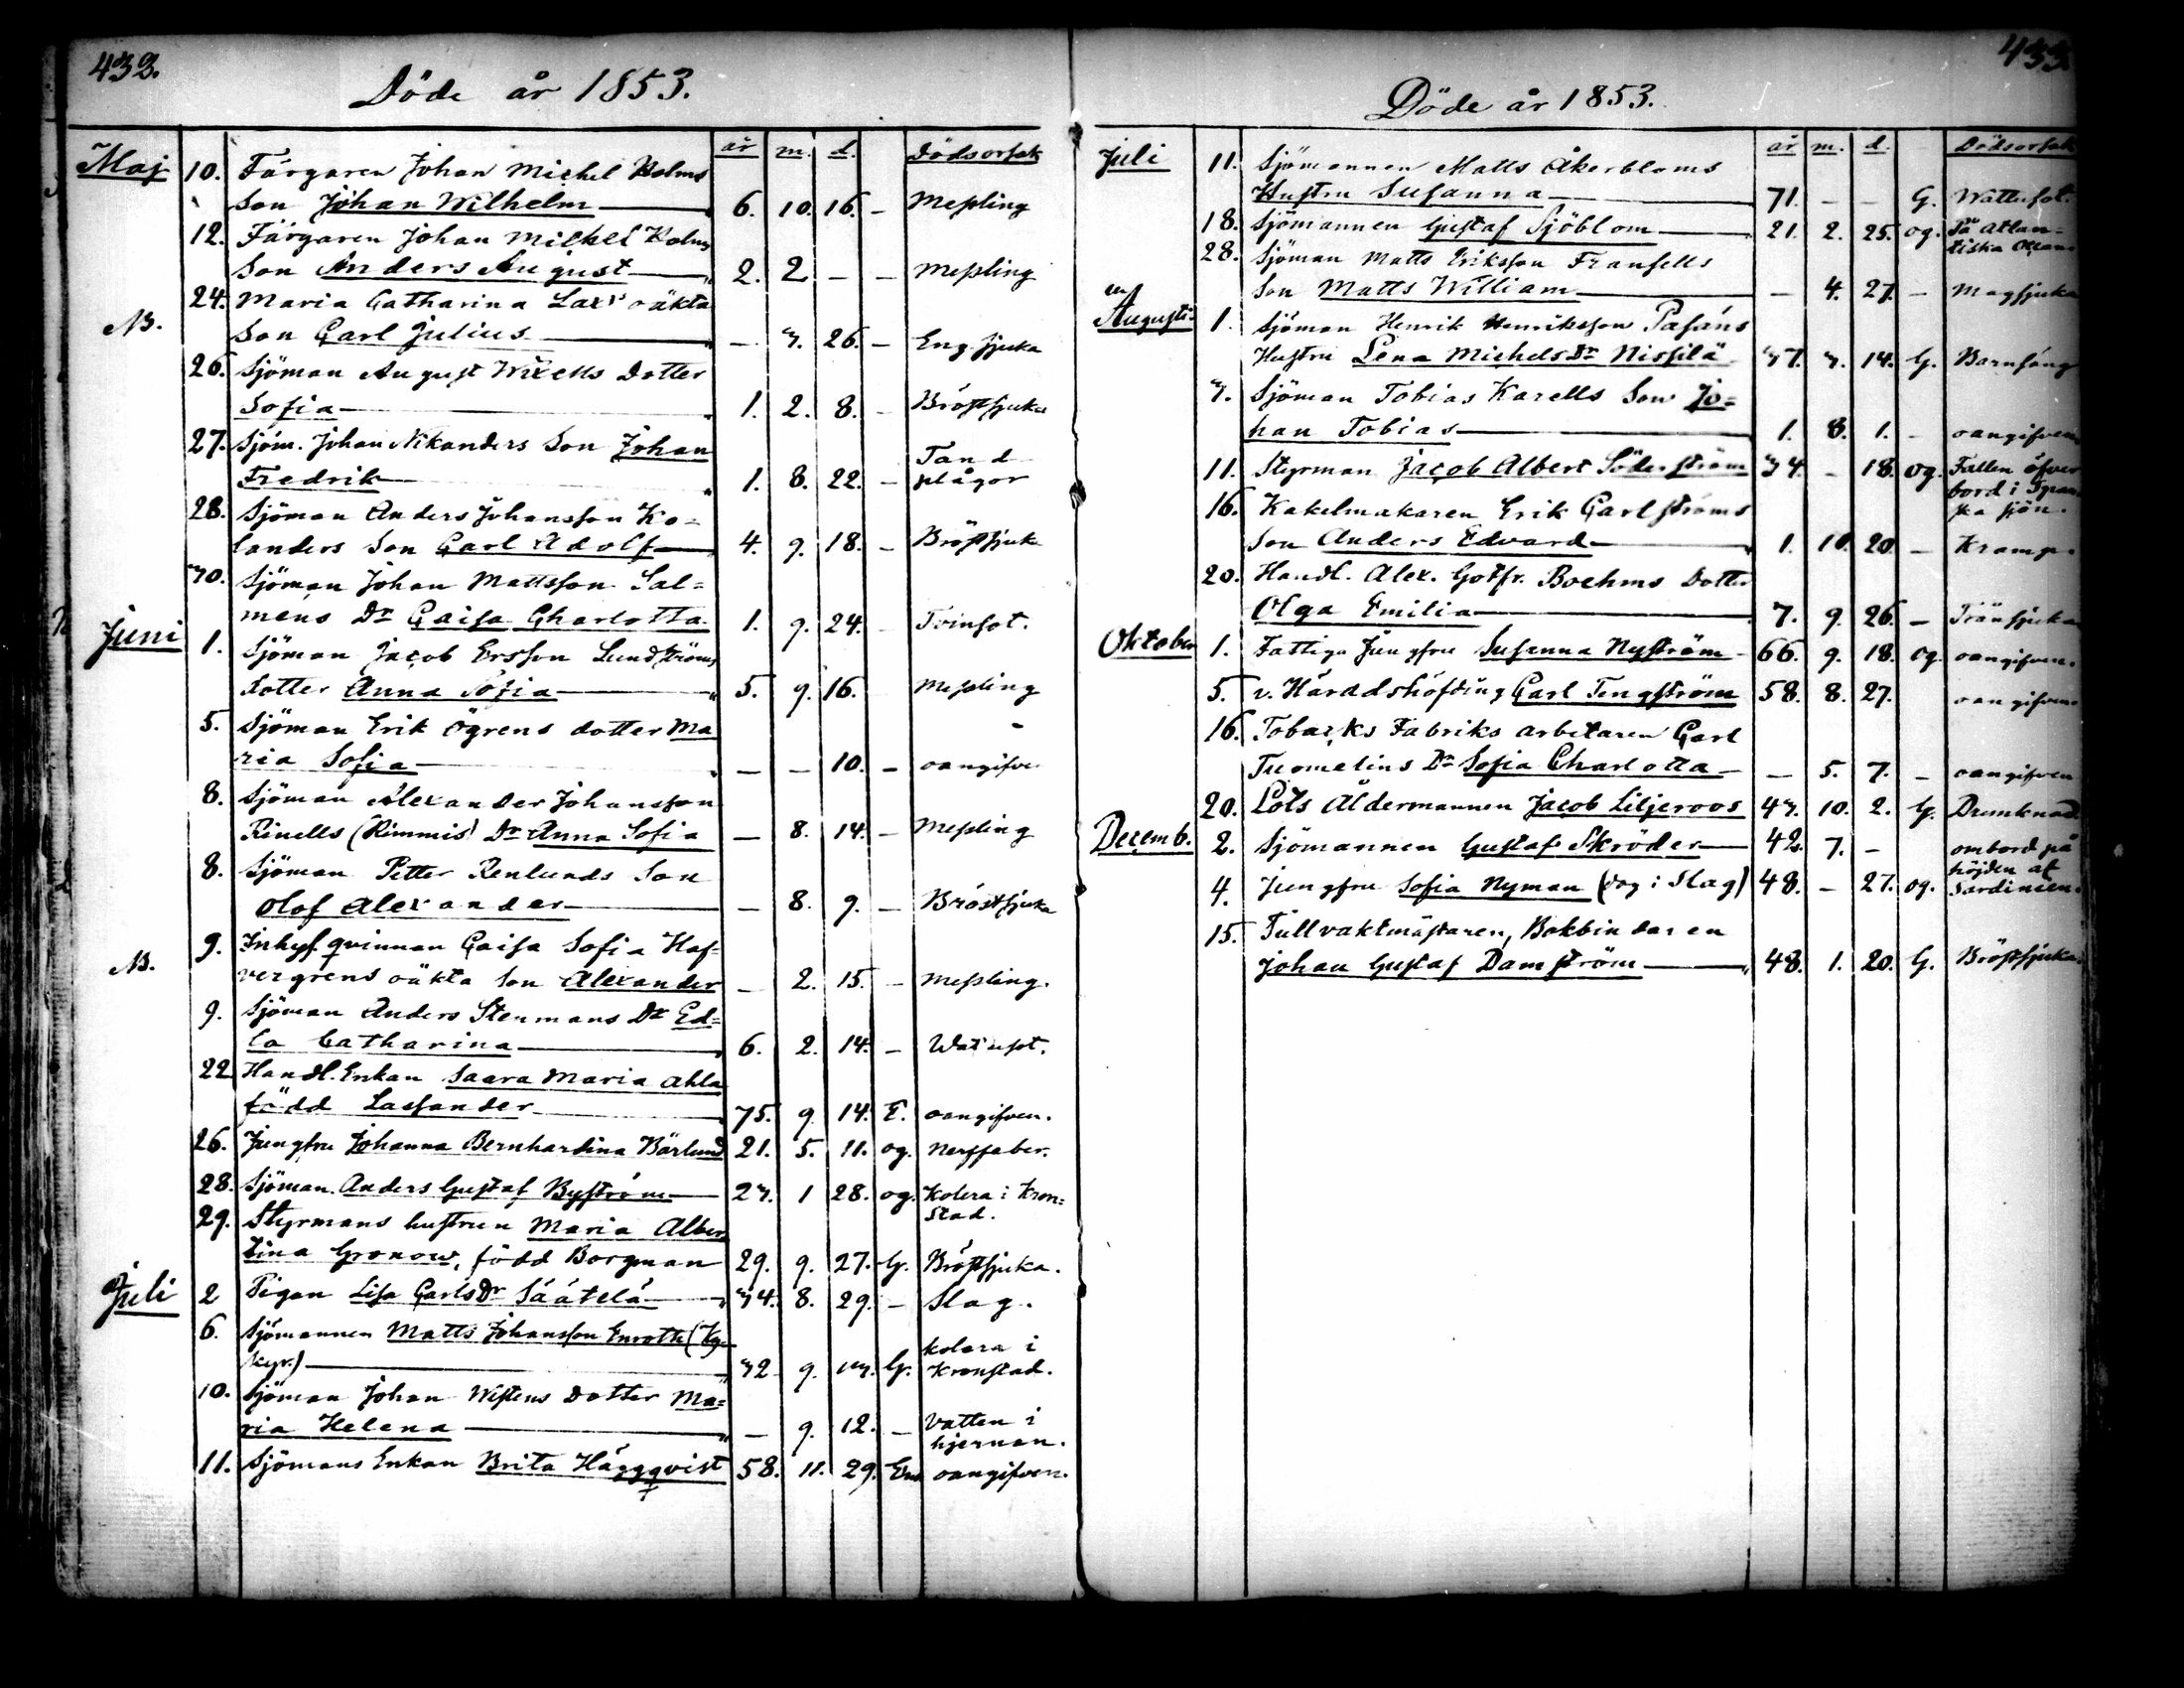 432.
Döde år 1853.
år m. d. Dödsorsak
Maj 10. Färgaren Johan Michel Holms
Son Johan Wilhelm 6. 10. 16. – Messling
12. Färgaren Johan Michel Holms
Son Anders August 2. 2 – – Messling
24. Maria Catharina Laxs oäkta
N.B. Son Carl Julius – 3. 26. – Eng. sjuka
26. Sjöman August Wixells Dotter
Sofia 1. 2. 8. – Bröstsjuka
27. Sjöm. Johan Nikanders Son Johan
Fredrik 1. 8. 22. – Tand
plågor
28. Sjöman Anders Johansson Ko-
landers Son Carl Adolf 4. 9. 18. – Bröstsjuk
30. Sjöman Johan Mattsson Sal=
mens Dr Caisa Charlotta 1. 9. 24. – Tvinsot.
Juni 1. Sjöman Jacob Ersson Lundströms
dotter Anna Sofia 5. 9. 16. Messling
5. Sjöman Erik Ögrens dotter Ma
ria Sofia – – 10. – oangifve
8. Sjöman Alexander Johansson
Rinells (Rimmis) Dr Anna Sofia – 8. 14. – Messling
8. Sjöman Petter Renlunds Son
Olof Alexander – 8. 9. – Bröstsjuka
9. Inhys. qvinnan Caisa Sofia Haf-
N.B. vergrens oäkta Son Alexander – 2. 15. – Messling.
9. Sjöman Anders Stenmans Dr Ed=
la Catharina 6. 2. 14. – Watusot.
22 Handl. Enkan Saara Maria Ahla
född Lassander 75. 9. 14. E. oangifven.
26. Jungfru Johanna Bernhardina Bärlund 21. 5. 11. og. Nerffeber.
28. Sjöman. Anders Gustaf Byström 23. 1 28. og. Kolera i Kron=
stad.
29. Styrmans hustrun Maria Alber
tina Gronow, född Borgman 29. 9. 27. G. Bröstsjuka.
Juli 2 Pigan Lisa Carls Dr Säätelä 34. 8. 29. – Slag.
6. Sjömannen Matts Johansson Enrotth (Ky-
kyr.) 32 9. G. kolera i
Kronstad.
10. Sjöman Johan Wistens Dotter Ma=
ria Helena – 9. 12. – Vatten i
hjernan.
11. Sjömans Enkan Brita Häggqvist 58. 11. 29. Enk oangifven.
433.
Döde år 1853.
år m. d. Dödsorsak
Juli 11. Sjömannen Matts Åkerbloms
Hustru Susanna 71. – – G. Wattusot.
18. Sjömannen Gustaf Sjöblom 21. 2. 25. og. På Atlan=
tiska Ocean
28. Sjöman Matts Eriksson Fransells
Son Matts William – 4. 27. – Magsjuka
Augusti 1. Sjöman Henrik Henriksson Pasáns
Hustru Lena Michels Dr Nissilä 37. 3. 14. G. Barnsäng
3. Sjöman Tobias Karells Son Jo=
han Tobias 1. 8. 1. – oangifven
11. Styrman Jacob Albert Söderström 34. – 18. og. Fallen öfver
bord i Span
ska sjön.
16. Kakelmakaren Erik Carlströms
Son Anders Edvard 1. 10. 20. – Kramp.
20. Handl. Alex. Gotfr. Boehms Dotter
Olga Emilia 7. 9. 26. – Tränsjuka
Oktober 1. Fattiga Jungfru Susanna Nyström 66. 9. 18. og. oangifven.
5. v. Häradshöfding Carl Tengström 58. 8. 27. oangifven
16. Tobacks Fabriks arbetaren Carl
Tuomelins Dr Sofia Charlotta – 5. 7. – oangifven
20. Lots Åldermannen Jacob Liljeroos 43. 10. 2. G. Drunknad
Decemb. 2. Sjömannen Gustaf Skröder 42. 7. – ombord på
höjden af
Sardinien.
4. Jungfru Sofia Nyman (dog i Slag) 48. – 27. og.
15. Tullvaktmästaren, Bokbindaren
Johan Gustaf Damström 48. 1. 20. G. Bröstsjuka